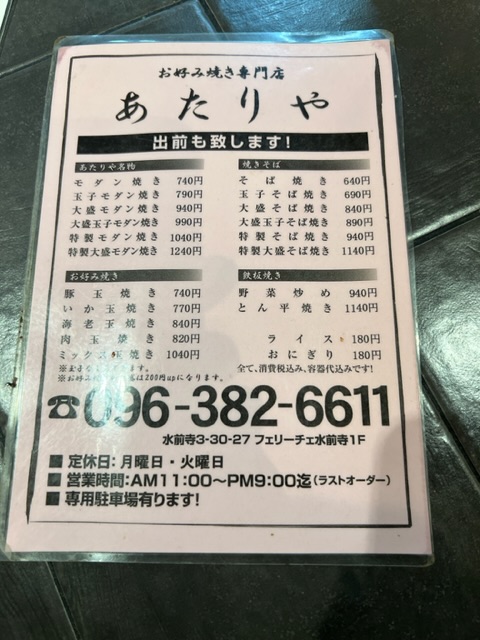 お好み焼き専門店
あたりや
出前も致します!
あたりや名物
モダン焼き 740円
玉子モダン焼き 790円
大盛モダン焼き 940円
大盛玉子モダン焼き 990円
特製モダン焼き 1040円
特製大盛モダン焼き 1240円
お好み焼き
豚玉焼き 740円
いか玉焼き 770円
海老玉焼き 840円
肉玉焼き 820円
ミックス 焼き 1040円
焼きそば
そば焼き 640円
玉子そば焼き 690円
大盛そば焼き 840円
大盛玉子そば焼き 890円
特製そば焼き 940円
特製大盛そば焼き 1140円
鉄板焼き
野菜炒め 940円
とん平焼き 1140円
ライス 180円
おにぎり 180円
全て、消費税込み、容器代込みです!
※お好み は200円upになります。
☎096-382-6611
水前寺3-30-27 フェリーチェ水前寺1F
■ 定休日:月曜日・火曜日
■ 営業時間:AM11:00〜PM9:00迄(ラストオーダー)
■ 専用駐車場有ります!